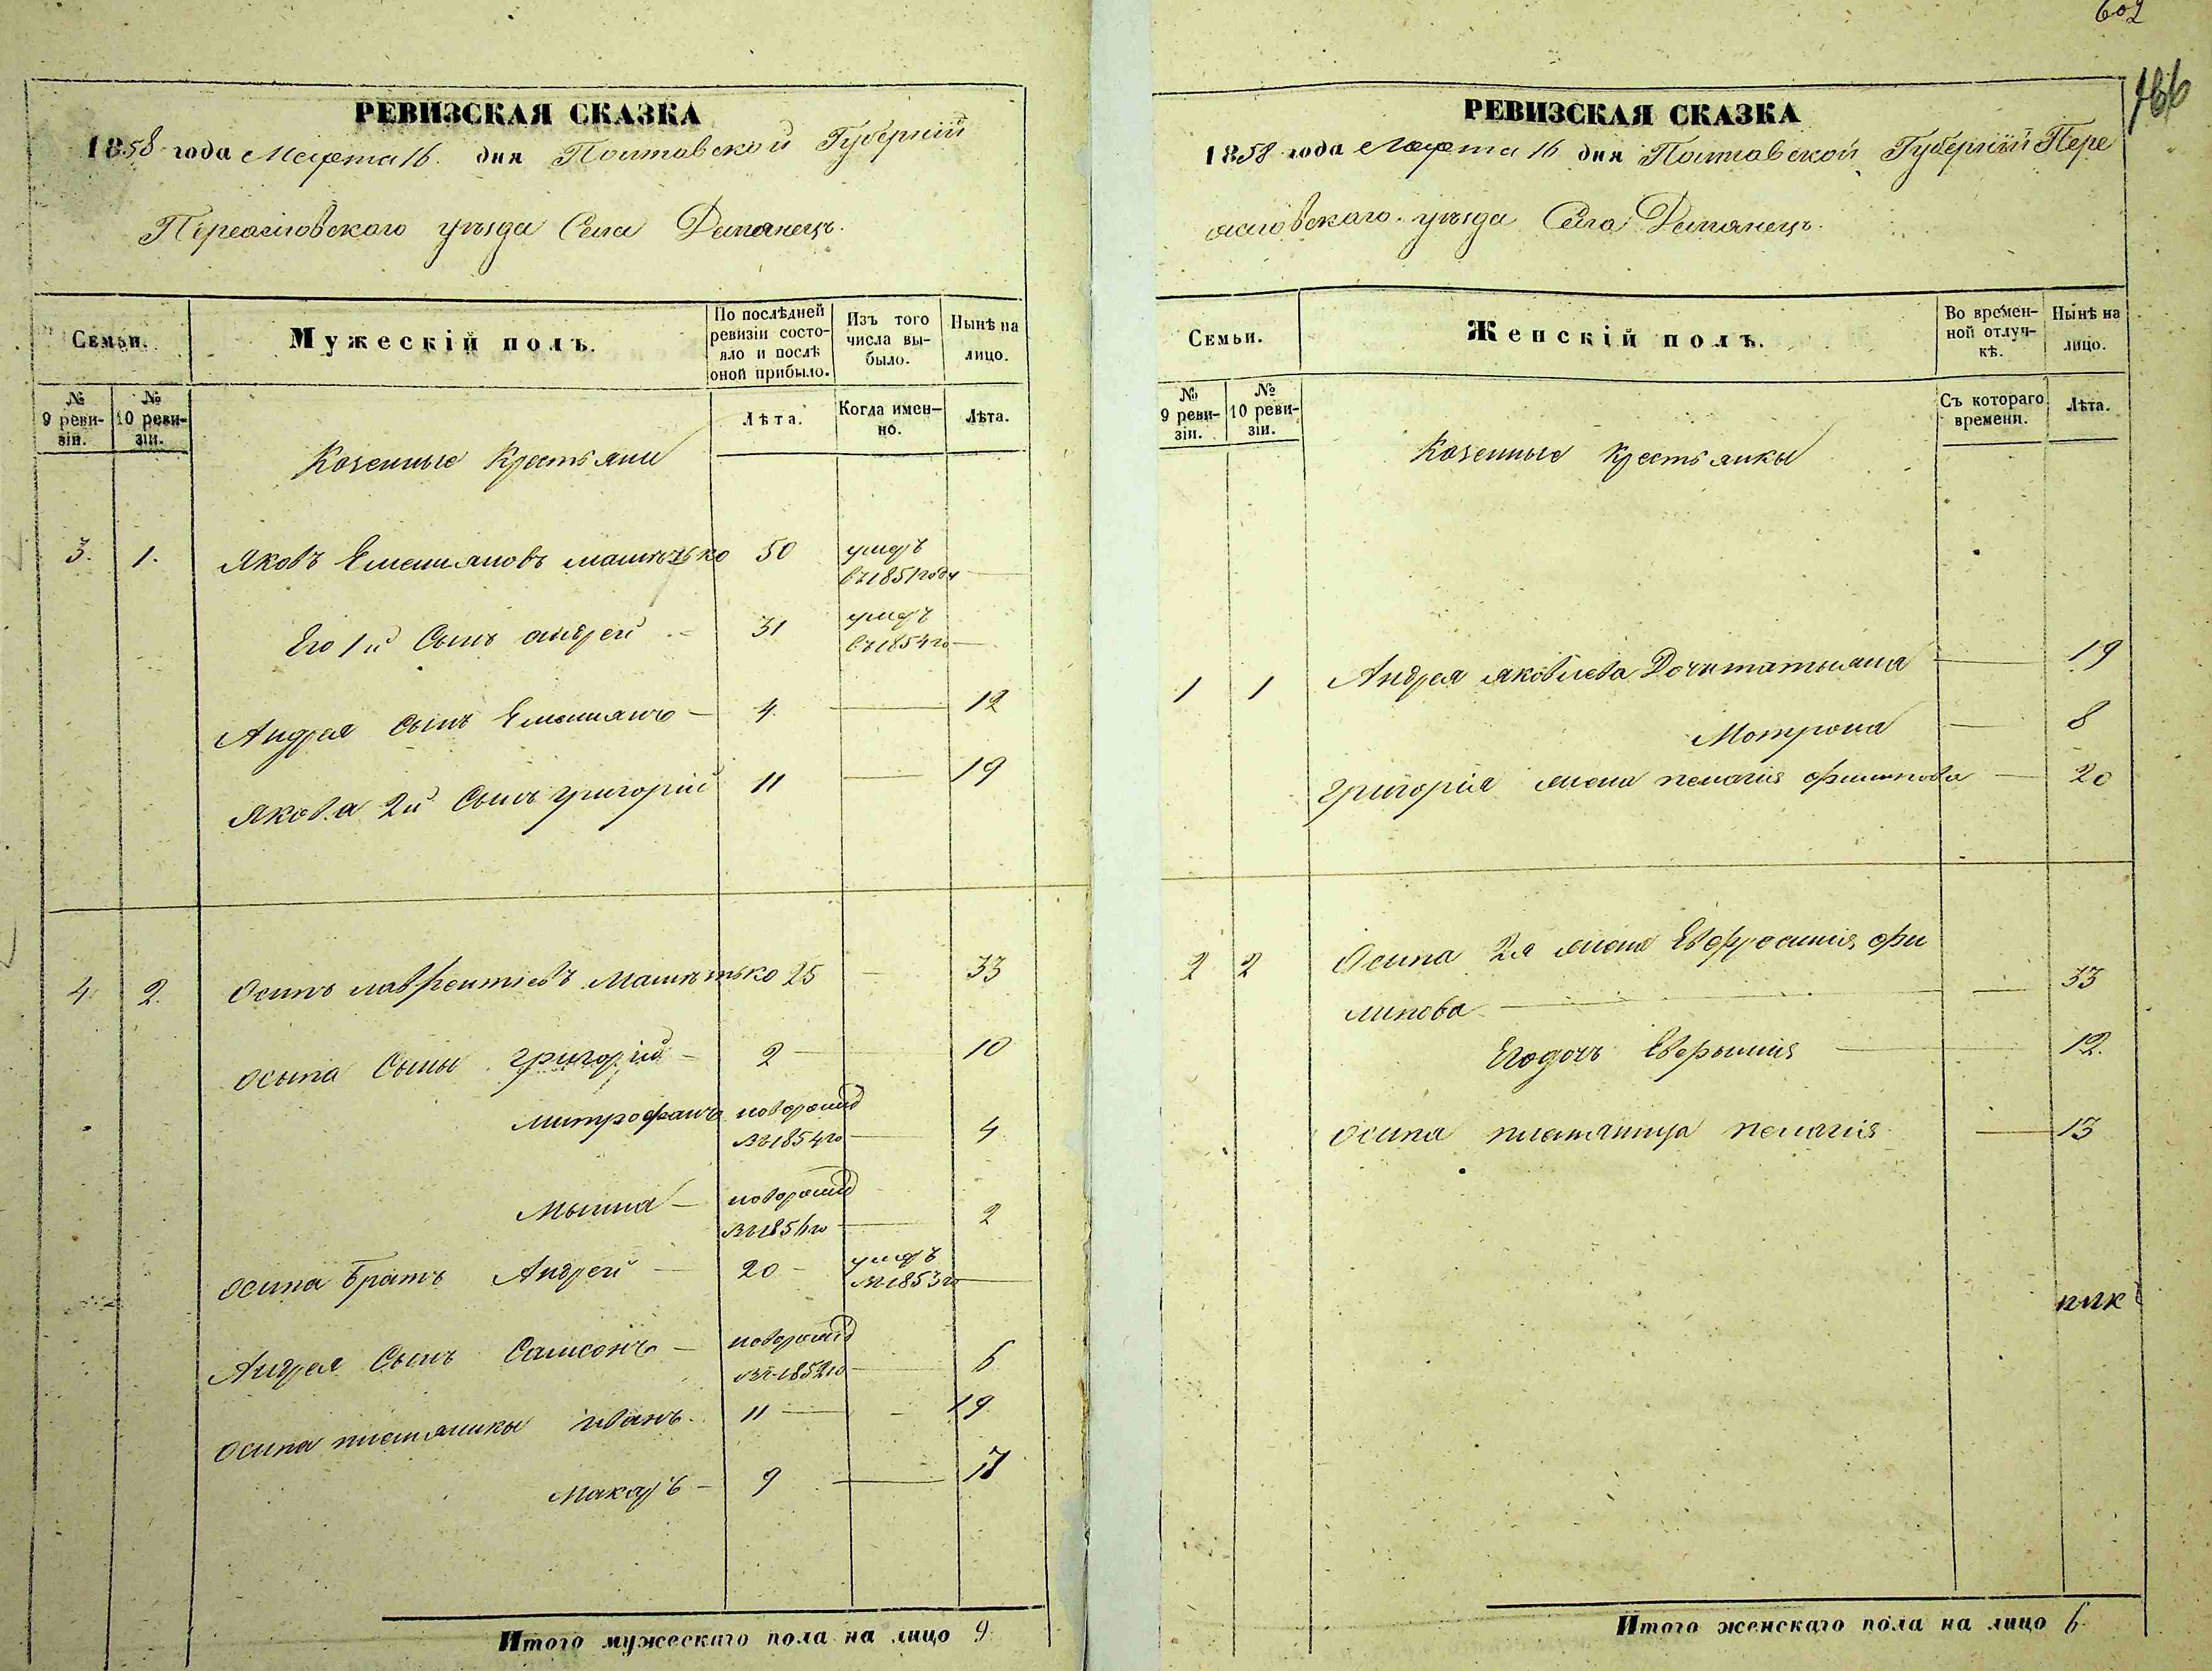 РЕВИЗСКАЯ СКАЗКА
1858 года Марта 16. дня Полтавской Губерніи
Переасловского уѣзда Села Демянецъ.
Семьи.
Мужескій полъ.
По послѣдней ревизіи состояло и послѣ оной прибыло.
Изъ того числа выбыло.
Нынѣ на лицо.
№ 9 ревизіи.
№ 10 ревизіи.
Лѣта.
Когда именно.
Лѣта.
Козенные Крестьяни
3. 1. Яковъ Емельяновъ 50 умеръ въ 1851 году
Его 1й Сынъ андрей 31 умеръ въ 1854 го
Андрея Сынъ Емельянъ 4 12
Якова 2й Сынъ григорій 11 19
4 2. Осипъ лаврентіевъ 25 33
осыпа Сыны григорій 2 10
митрофанъ новорожд въ 1854 го 4
новорожд въ 1856 го 2
осипа братъ Андрей 20 умеръ въ 1853 го
Андрея Сынъ Самсонъ новорожд въ 1852 го 6
осипа племянники иванъ 11 19
макаръ 9 17
Итого мужескаго пола на лицо 9
602
РЕВИЗСКАЯ СКАЗКА
1858 года Марта 16 дня Полтавской Губерніи Пере
асловского уѣзда Села Демянецъ.
Семьи.
Женскій полъ.
Во временной отлучкѣ.
Нынѣ на лицо.
№ 9 ревизіи.
№ 10 ревизіи.
Съ котораго времени.
Лѣта.
Козенные Крестьянкы
1 1 Андрея яковлева Дочь татьяна 19
Мотрона 8
григорія жена пелагія филипова 20
2 2 Осипа 2я жена Евфросинія фи
липова 33
Его дочь 12.
осипа племянница пелагія 13
Итого женскаго пола на лицо 6